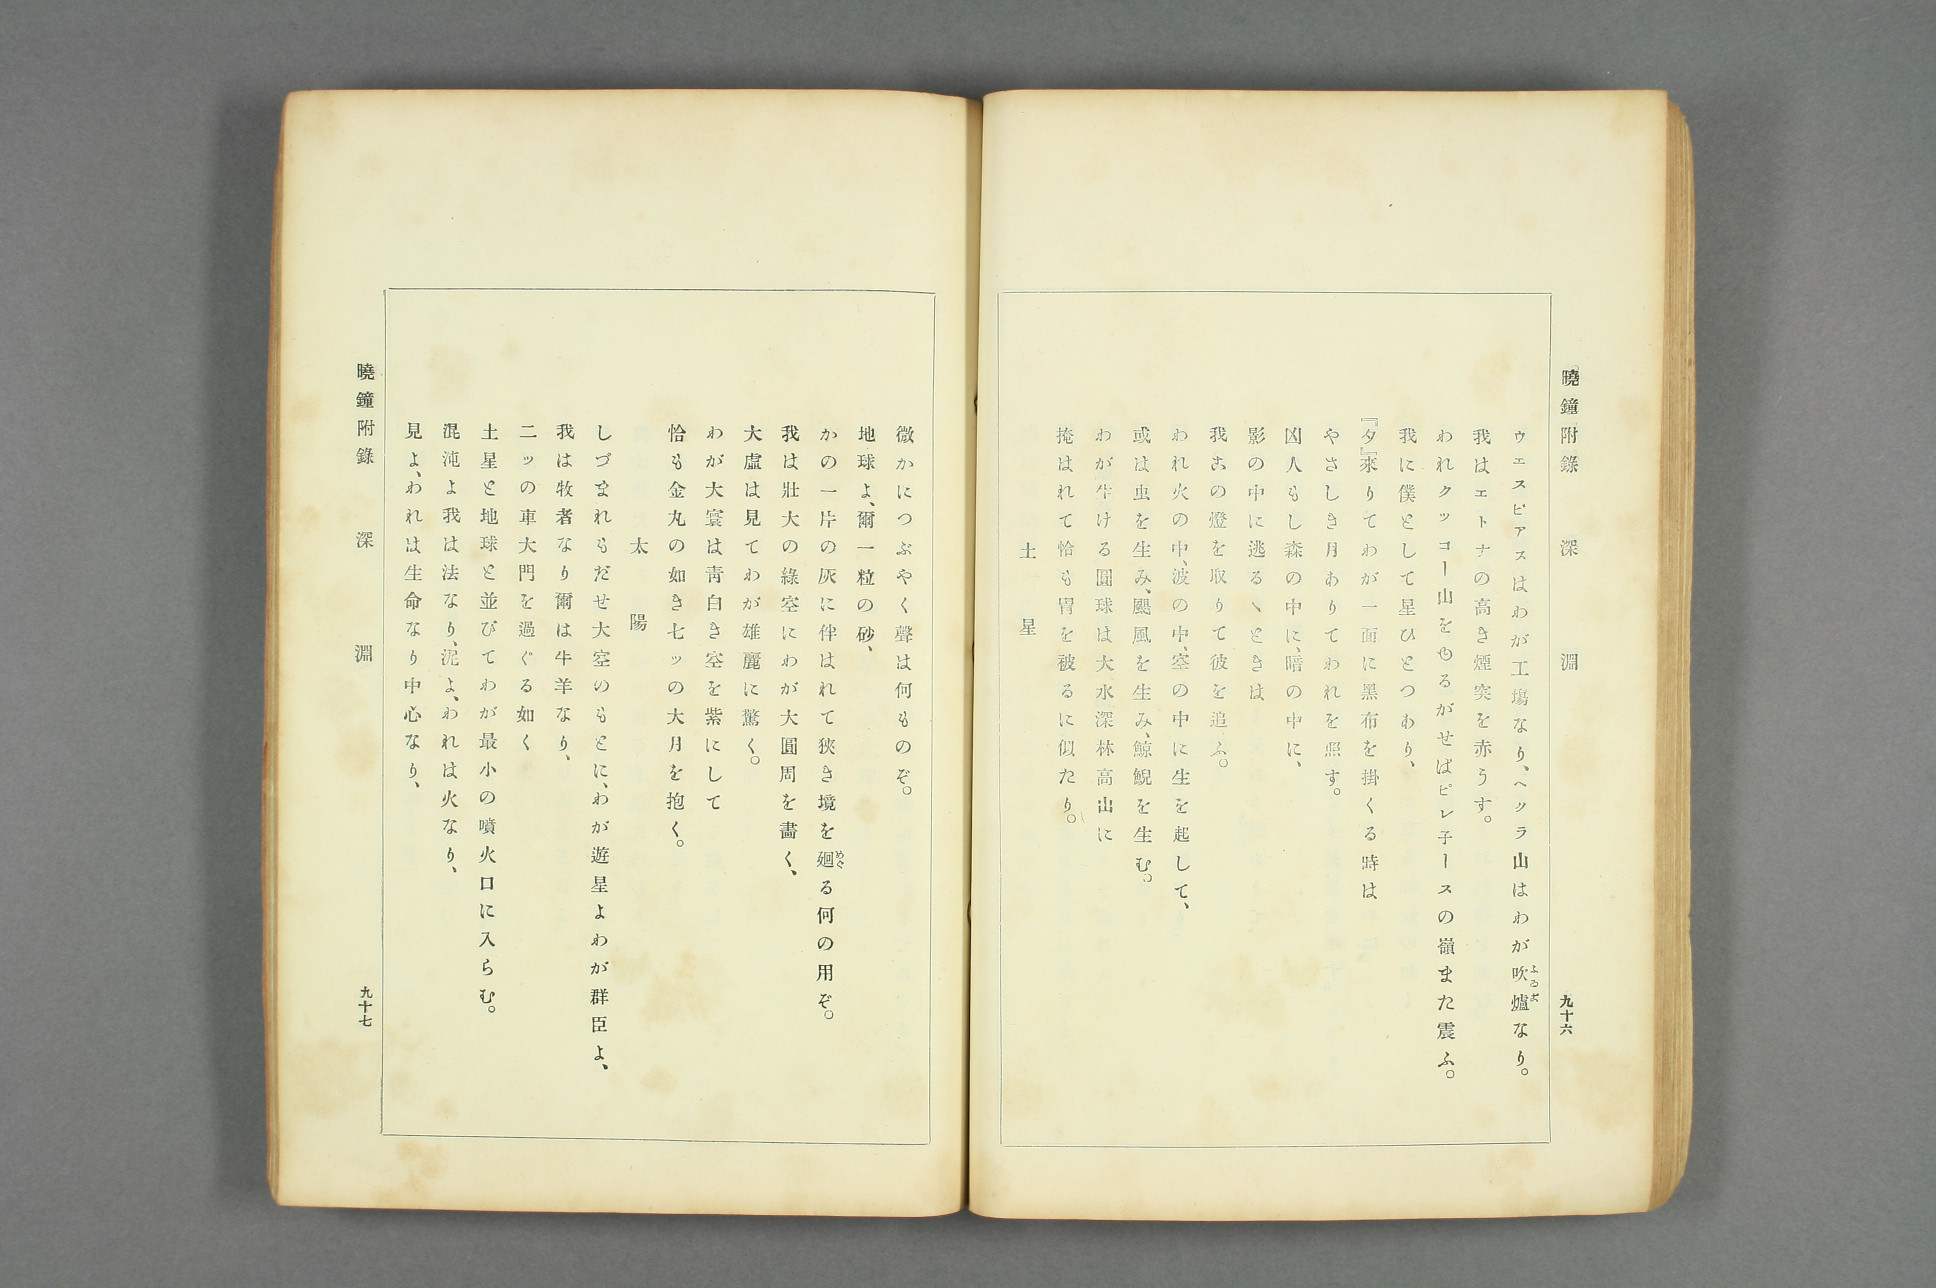 曉鐘附錄　深　淵　九十六
ウェスピアスはわが工塲なり、ヘッラ山はわが吹爐なり。
ふゐご
我はエトナの高き煙突を赤うす。
われクッコー山をゆるがせばピレ子ースの嶺また震ふ。
我に僕として星ひとつあり、
『夕』來りてわが一面に黑布を掛くる時は
やさしき月ありてわれを照す。
凶人もし森の中に、暗の中に、
影の中に逃るゝときは
我この燈を取りて彼を追ふ。
われ火の中、波の中、空の中に生を起して、
或は虫を生み、颶風を生み、鯨鯢を生む。
わが生ける圓球は大水深林高山に
掩はれて恰も冑を被るに似たり。
土星
微かにつぶやく聲は何ものぞ。
地球よ、爾一粒の砂、
かの一片の灰に伴はれて狹き境を廻る何の用ぞ。
めぐ
我は壯大の綠空にわが大圓周を畵く、
大虛は見てわが雄麗に驚く。
わが大寰は靑白き空を紫にして
恰も金丸の如き七ッの大月を抱く。
太陽
しづまれもだせ大空のもとに、わが遊星よわが群臣よ、
我は牧者なり爾は牛羊なり、
二ッの車大門を過ぐる如く
土星と地球と並びてわが最小の噴火口に入らむ。
混沌よ我は法なり、泥よ、われは火なり、
見よ、われは生命なり中心なり、
曉鐘附錄　深　淵　九十七